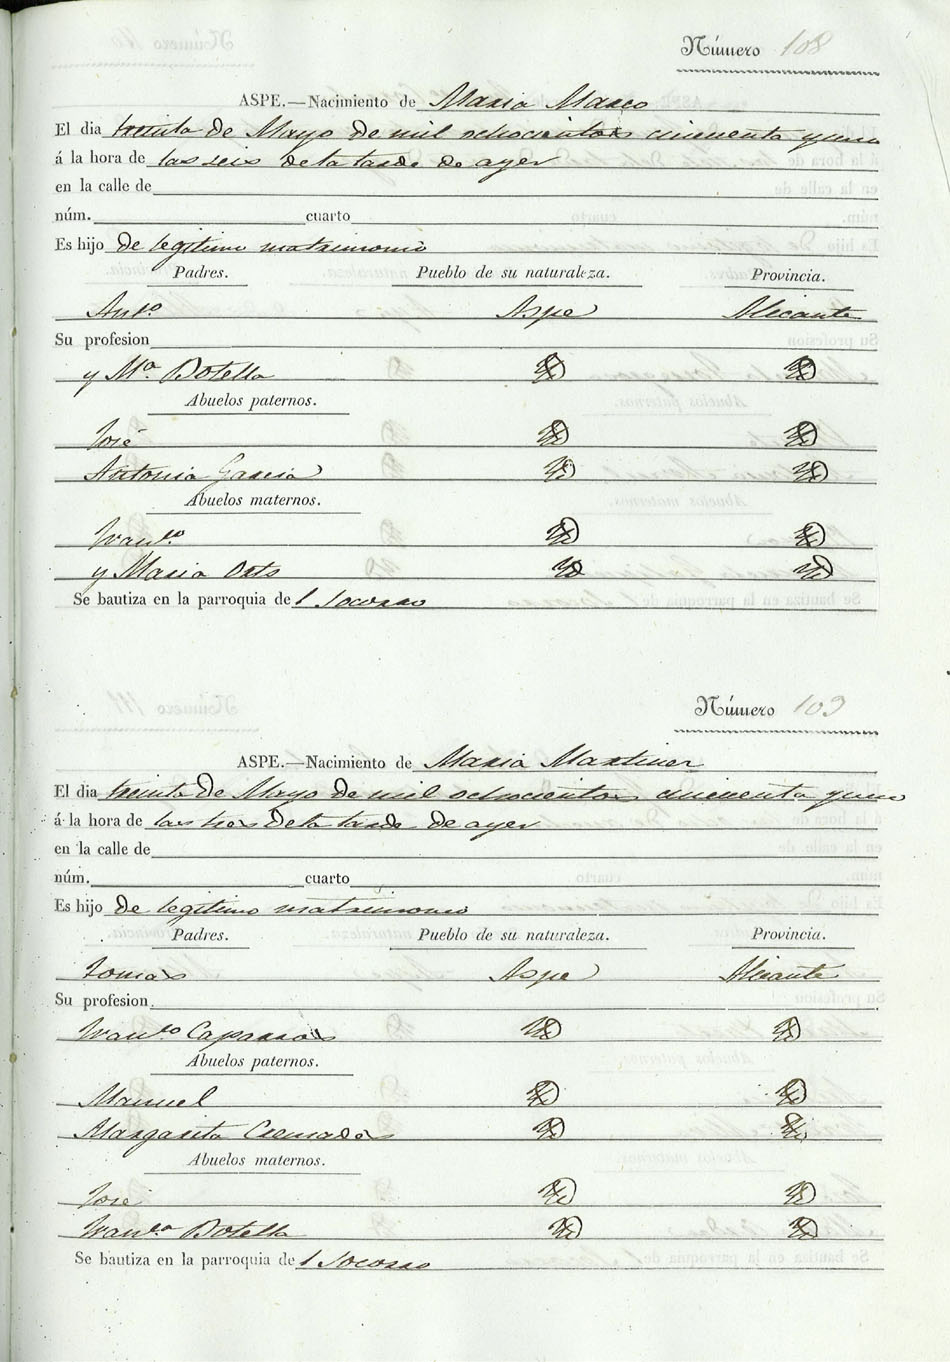 Número 108
ASPE.—Nacimiento de Maria Marco
El dia treinta de Mayo de mil ochocientos cincuenta y uno
á la hora de las seis de la tarde de ayer
en la calle de
núm. cuarto
Es hijo de legitimo matrimonio
Padres. Pueblo de su naturaleza. Provincia.
Antº Aspe Alicante
Su profesion
y Mª Botella Yd Yd
Abuelos paternos.
José Yd Yd
Antonia Garcia Yd Yd
Abuelos maternos.
Franco Yd Yd
y Maria Orts Yd Yd
Se bautiza en la parroquia del Socorro
Número 109
ASPE.—Nacimiento de Maria Martinez
El dia treinta de Mayo de mil ochocientos cincuenta y uno
á la hora de las tres de la tarde de ayer
en la calle de
núm. cuarto
Es hijo de legitimo matrimonio
Padres. Pueblo de su naturaleza. Provincia.
Tomas Aspe Alicante
Su profesion
Caparros Yd Yd
Abuelos paternos.
Manuel Yd Yd
Margarita Cremades Yd Yd
Abuelos maternos.
José Yd Yd
Franca Botella Yd Yd
Se bautiza en la parroquia del Socorro